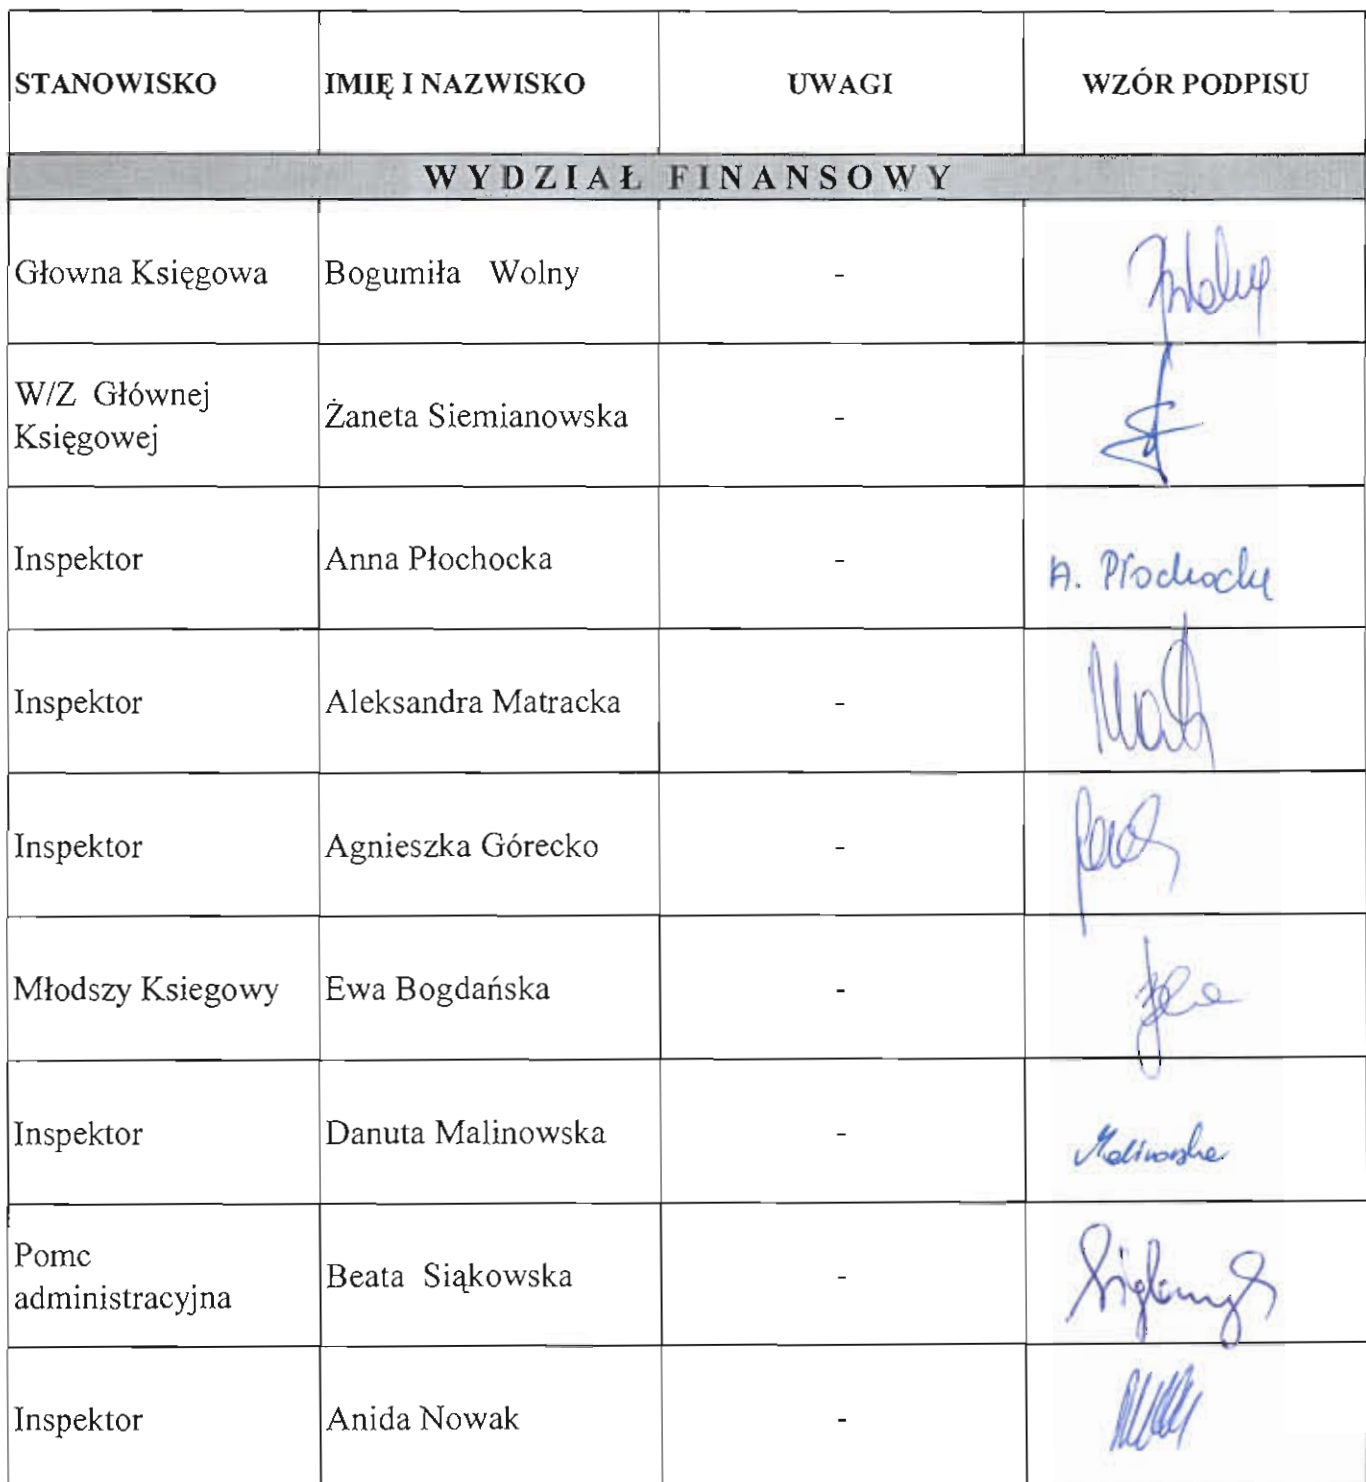 STANOWISKO IMIĘ I NAZWISKO UWAGI WZÓR PODPISU
WYDZIAŁ FINANSOWY
Głowna Księgowa Bogumiła Wolny -
W/Z Głównej
Księgowej Żaneta Siemianowska -
Inspektor Anna Płochocka - A. Płochocka
Inspektor Aleksandra Matracka -
Inspektor Agnieszka Górecko -
Młodszy Ksiegowy Ewa Bogdańska -
Inspektor Danuta Malinowska - Malinowska
Pomc
administracyjna Beata Siąkowska -
Inspektor Anida Nowak -